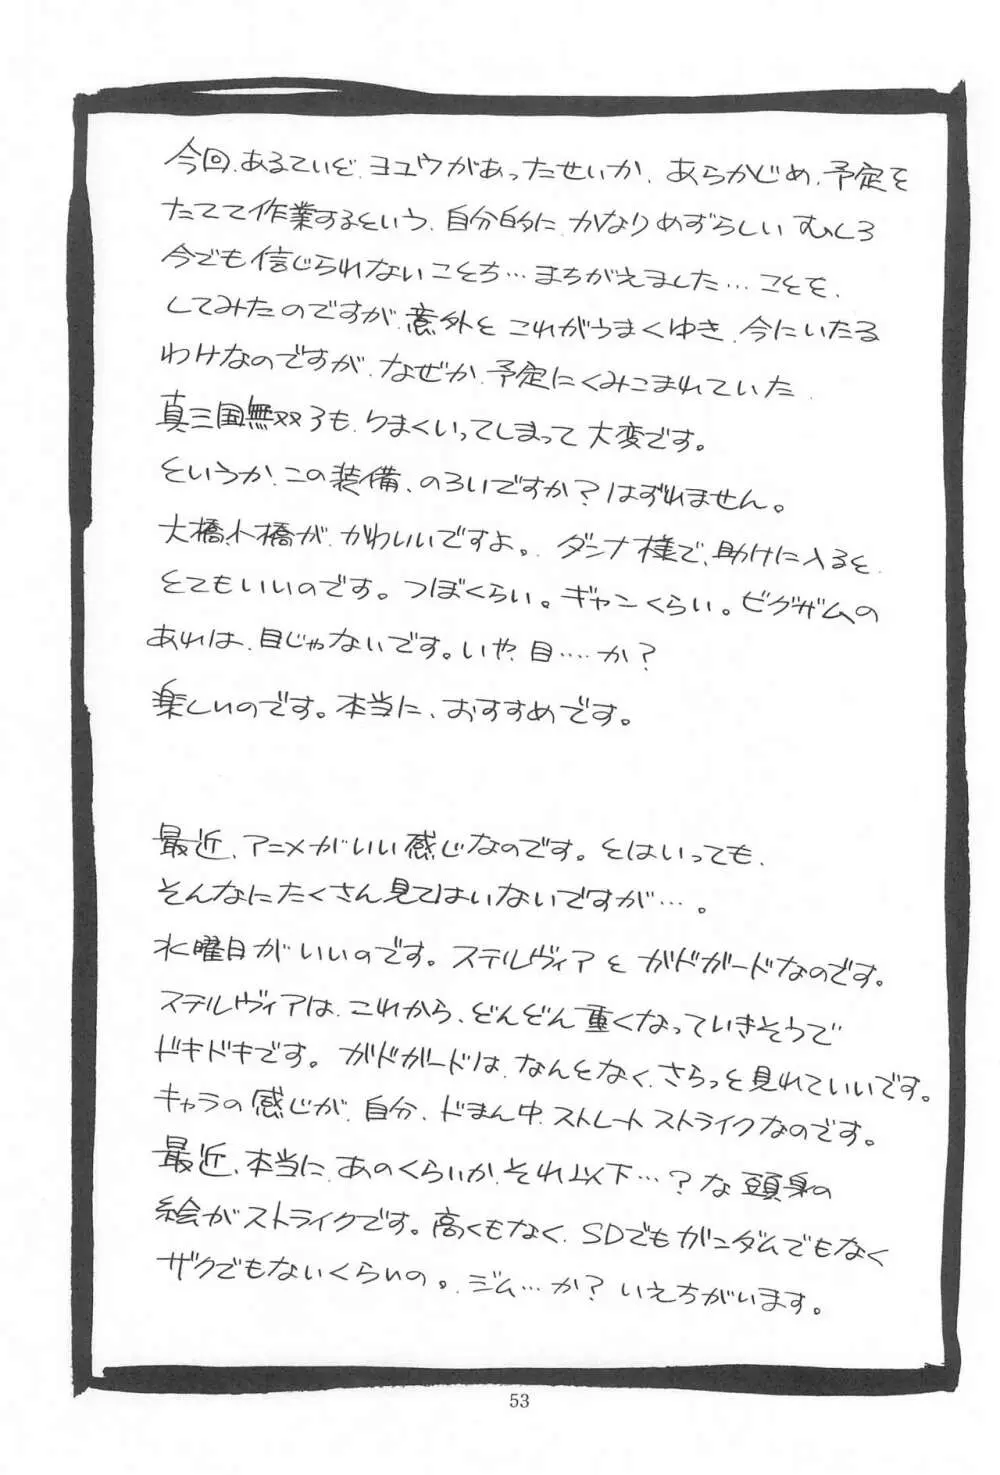 今回、あるていど、ヨユウがあったせいか、あらかじめ、予定を
たてて作業するという、自分的に、かなりめずらしい むしろ
今でも信じられないことち…まちがえました…ことを、
してみたのですが、意外と これがうまくゆき、今にいたる
わけなのですが、なぜか、予定にくみこまれていた、
真三国無双3も、うまくいってしまって 大変です。
というか、この装備、のろいですか?はずれません。
大橋小橋が、かわいいですよ。、ダンナ様で、助けに入ると、
とてもいいのです。つぼくらい。ギャンくらい。ビグザムの
あれは、目じゃないです。いや、目……か?
楽しいのです。本当に、おすすめです。
最近、アニメがいい感じなのです。とはいっても、
そんなにたくさん見てはいないですが…。
水曜日がいいのです。ステルヴィアとガドガードなのです。
ステルヴィアは、これから、どんどん重くなっていきそうで
ドキドキです。ガドガードは、なんとなく、さらっと見れていいです。
キャラの感じが、自分、ドまん中、ストレートストライクなのです。
最近、本当に、あのくらいか、それ以下…?な頭身の
絵がストライクです。高くもなく、SDでもガンダムでもなく
ザクでもないくらいの。ジム…か?いえちがいます。
53